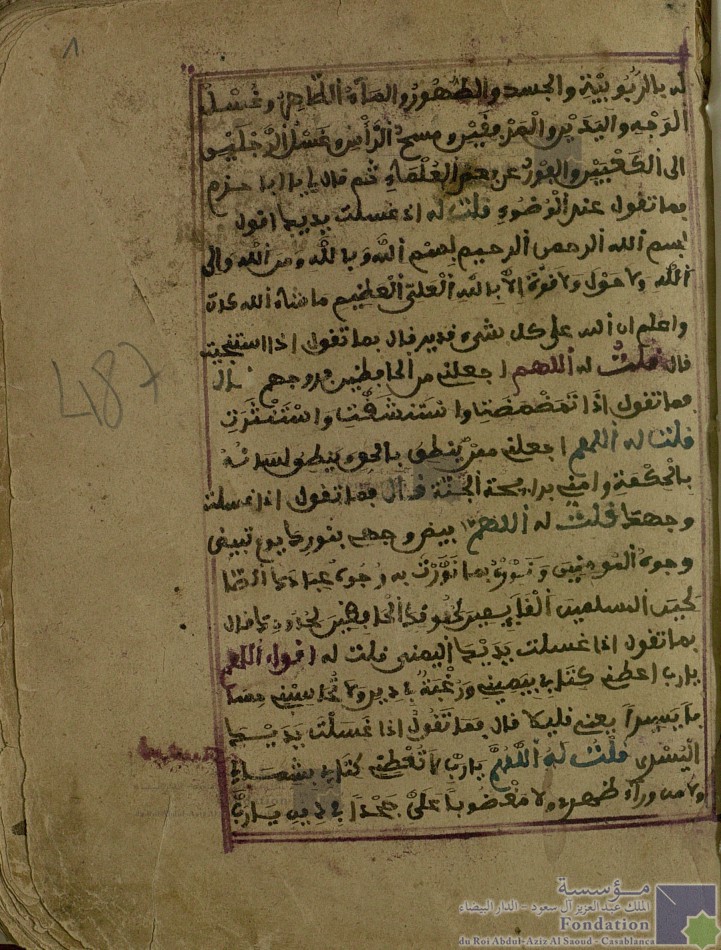 ١
له بالربوبية والجسد والطهور والماء الطاهر وغسل
الوجه واليدين والمرفقين ومسح الرأس وغسل الرجلين
الى الكعبين والفور عن بعض العلماء ثم قال يا ابا حزم
فما تقول عند الوضوء قلت له اذا غسلت يديا اقول
بسم الله الرحمن الرحيم بسم الله وبالله ومن الله والى
الله ولا حول ولا قوة الا بالله العلي العظيم ما شاء الله كان
واعلم ان الله على كل شيء قدير قال بما تقول اذا استنجيت
قال قلت له اللهم اجعلني من الحافظين فروجهم قال
فما تقول اذا تمضمضت واستنشقت واستنثرت
قلت له اللهم اجعلني ممن ينطق بالحق وينطق لسانه
بالحكمة وامني برايحة الجنة قال فما تقول اذا غسلت
وجهك قلت له اللهم بيض وجهي بنورك يوم تبيض
وجوه المومنين ونوره بما نورت به وجوه عبادك الصا
لحين المسلمين القايمين لحقوقك الحافظين لحدودك قال
بما تقول اذا غسلت يديك اليمنى قلت له اقول اللهم
يا رب اعطني كتابي بيميني ورغبة في ديني ولا تحاسبني حسا
با يسيرا يعني قليلا قال فما تقول اذا غسلت يديك
اليسرى قلت له اللهم يا رب لا تعطني كتابي بشمالي
ولا من وراء ظهري ولا مغضوبا علي جحدا في ديني يا رب
487
مؤسسة
الملك عبد العزيز آل سعود - الدار البيضاء
Fondation
du Roi Abdul-Aziz Al Saoud - Casablanca